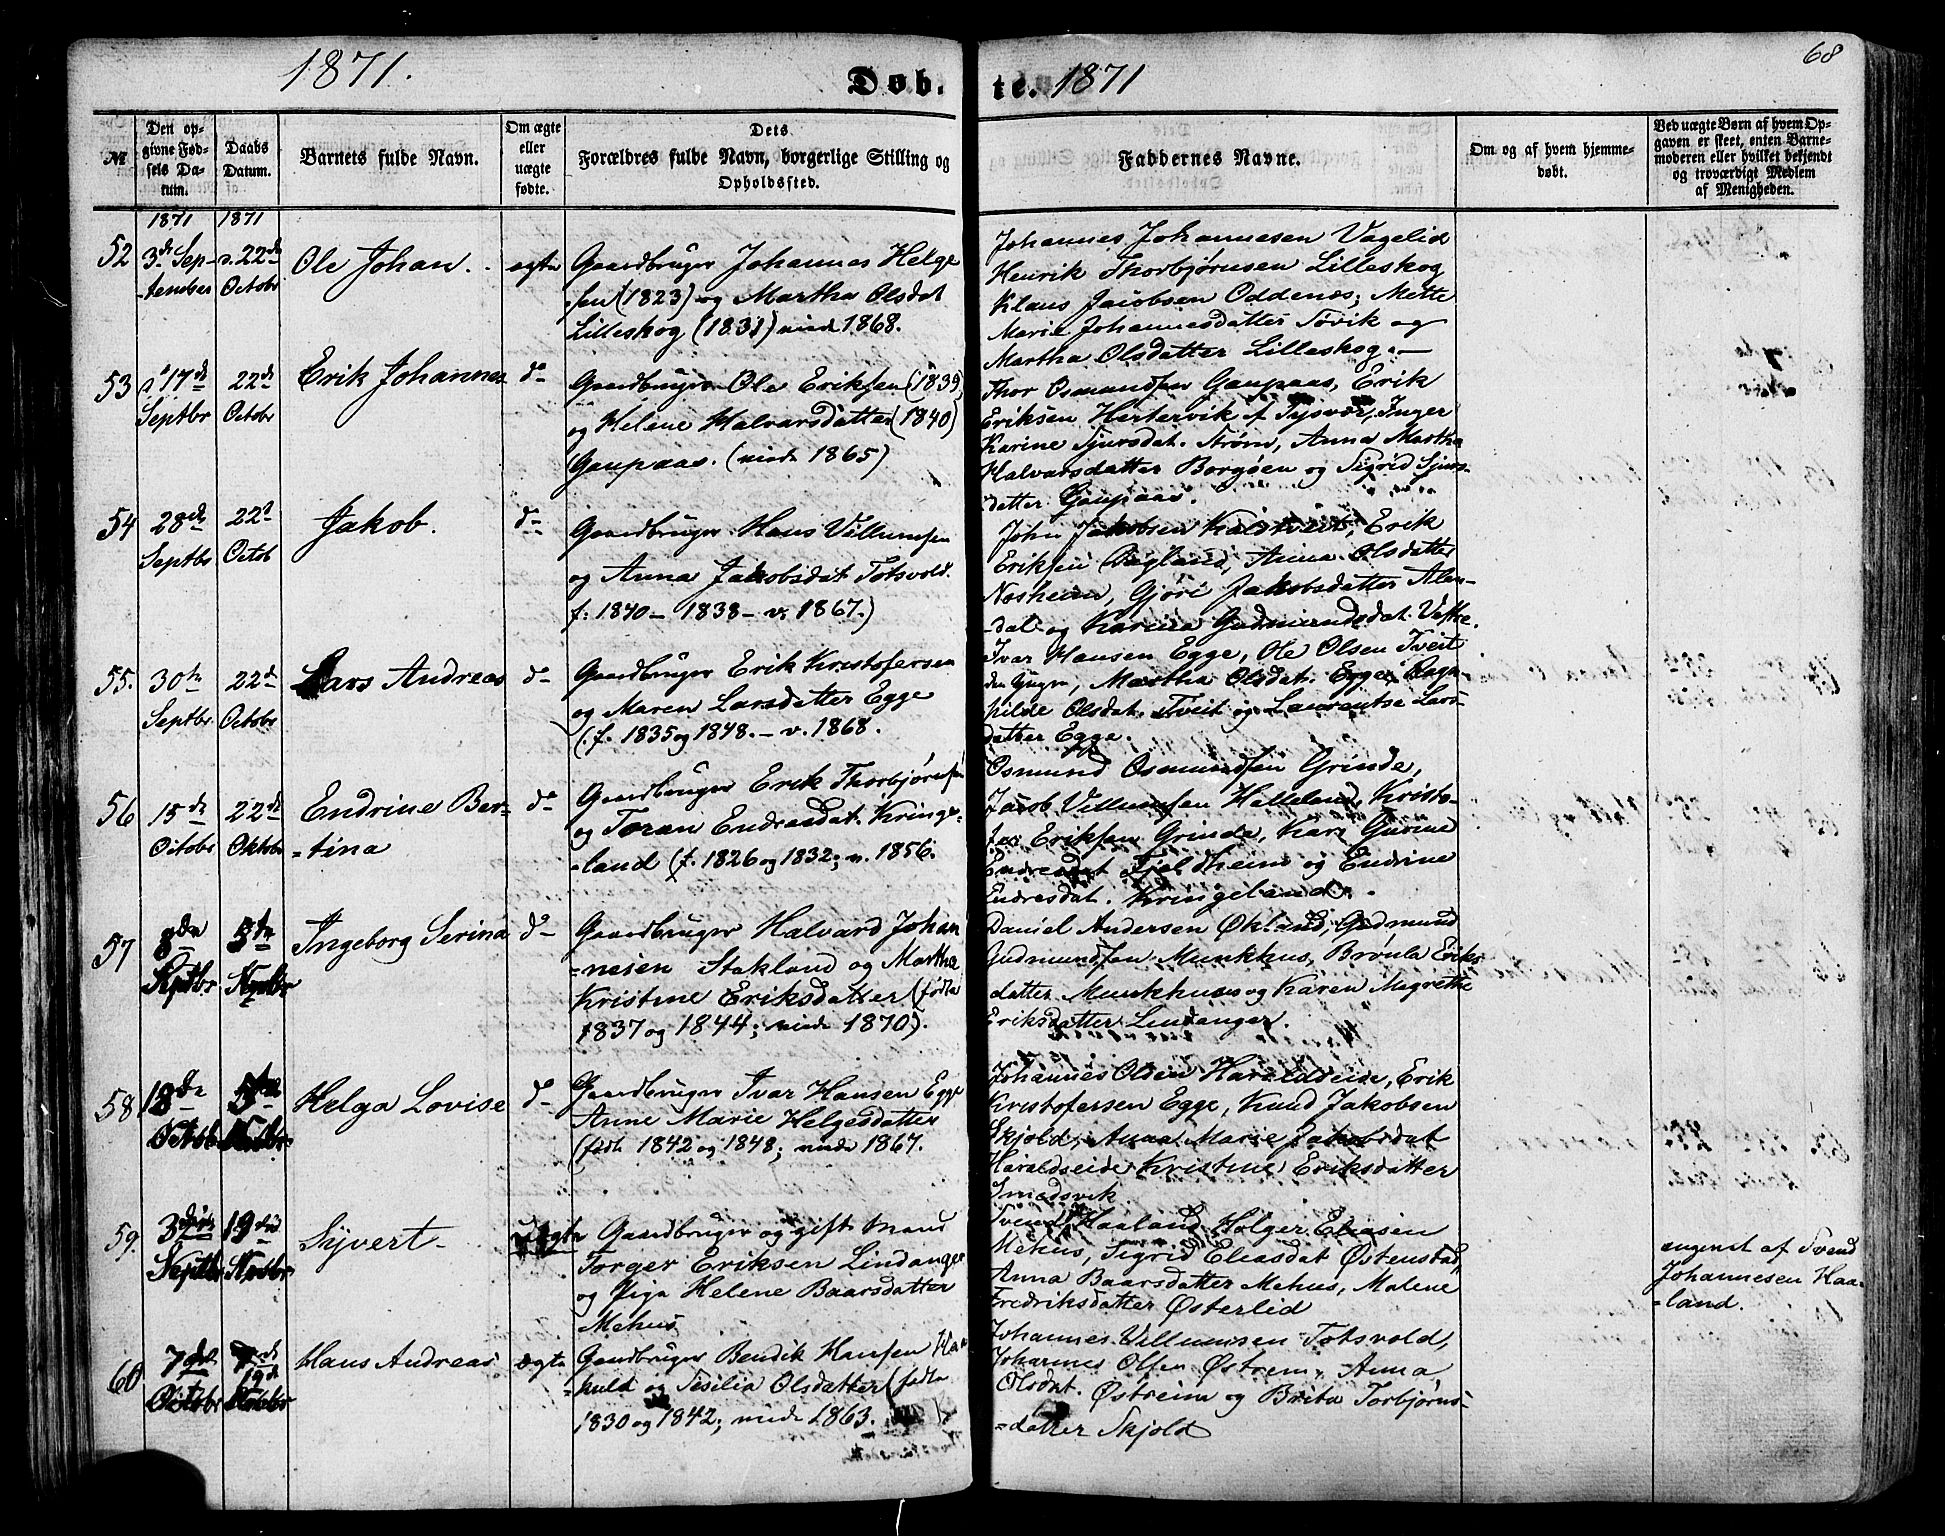 1871.
Døb.
te. 1871
68
№
Den op-
givne Fød-
sels Da-
tum.
Daabs
Datum.
Barnets fulde Navn.
Om ægte
eller
uægte
fødte.
Dets
Forældres fulde Navn, borgerlige Stilling og
Opholdssted.
Faddernes Navne.
Om og af hvem hjemme-
døbt.
Ved uægte Børn af hvem Op-
gaven er skeet, enten Barne-
moderen eller hvilket bekjendt
og troværdigt Medlem
af Menigheden.
1871
1871
52
3d Sep-
-tember
22d
Octobr
Ole Johan.
ægte
Gaardbruger Johannes Helge
-sen (1823) og Martha Olsdat
Lilleskog (1831) viede 1868.
Johannes Johannesen Vagelid
Henrik Thorbjørnsen Lilleskog
Klaus Jacobsen Oddenes, Mette
Marie Johannesdatter Søvik og
Martha Olsdatter Lilleskog.
53
17de
Septbr
22de
Octobr
Erik Johannes
do
Gaardbruger Ole Eriksen (1839)
og Helene Halvarsdatter (1840)
Gaupaas. (viede 1865)
Thor Osmundsen Gaupaas, Erik
Eriksen Hertervik af Tysvær, Inger
Karine Sjursdat. Strøm, Anna Martha
Halvarsdatter Borgøen og Sigrid Sjurs-
datter Gaupaas.
54
28de
Septbr
22d
Octob
Jakob.
do
Gaardbruger Hans Villumsen
og Anna Jakobsdat Totsvold.
f. 1840 - 1838 - v. 1867.)
John Jakobsen Kaldtveit, Erik
Eriksen Dagland, Anna Olsdatter
Nesheim, Gjøri Jakobsdatter Alen-
-dal og Karine Gudmundsdat. Vestre.
55.
30te
Septbr
22d
Octobr
Lars Andreas
do
Gaardbruger Erik Kristofersen
og Maren Larsdatter Egge
(f. 1835 og 1848. - v. 1868.
Ivar Hansen Egge, Ole Olsen Tveit
den Yngre, Martha Olsdat. Egge, Ragn-
hilde Olsdat. Tveit og Laurentse Lars-
datter Egge.
56
15de
Octobr
22de
Oktobr
Endrine Ber-
-tina
do
Gaardbruger Erik Thorbjørnsen
og Toran Endresdat. Kringe-
-land (f. 1826 og 1832; v. 1856.
Osmund Osmundsen Grinde,
Jacob Villumsen Helleland, Kristo-
fer Eriksen Grinde, Kari Gurine
Endresdat Fjeldheim og Endrine
Endresdat. Kringeland.
57
8de
Septbr
5te
Novbr
Ingeborg Serina
do
Gaardbruger Halvard Johan
-nesen Stakland og Martha
Kristine Eriksdatter (fødte
1837 og 1844; viede 1870).
Daniel Andersen Økland, Gudmund
Gudmundsen Munkhus, Brønla Eriks
datter Munkhus og Karen Magrethe
Eriksdatter Lindanger.
58
18de
Octobr
5te
Novbr
Helga Lovise
do
Gaardbruger Ivar Hansen Egge
Anne Marie Helgesdatter
(født 1842 og 1848; viede 1867.
Johannes Olsen Haraldseide, Erik
Kristofersen Egge, Knud Jakobsen
Skjold, Anna Marie Jakobsdat
Haraldseide Kristine Eriksdatter
Smedsvik
59.
3die
Septbr
19de
Novbr
Syvert
uægte
Gaardbruger og gift Mand
Torger Eriksen Lindanger
og Piga Helene Baarsdatter
Mehus
Svend Haaland Holger Eliasen
Mehus, Sigrid Eliasdat Østenstad,
Anna Baarsdatter Mehus, Malene
Fredriksdatter Østerlid
angivet af Svend
Johannesen Haa-
-land.
60
7de
Octobr
19de
Novbr
Hans Andreas
ægte
Gaardbruger Bendik Hansen
og Sesilia Olsdatter (fødte
1830 og 1842; viede 1863.
Johannes Villumsen Totsvold,
Johannes Olsen Østrem, Anna
Olsdat. Østreim og Brita Torbjørns-
-datter Skjold